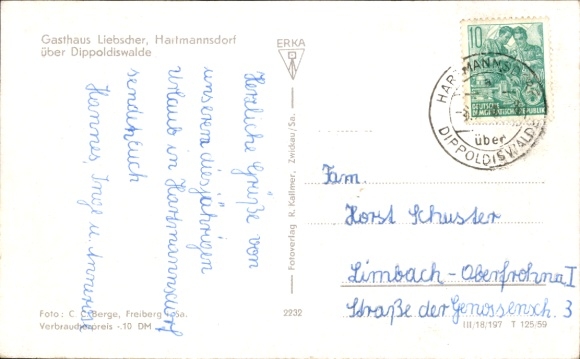 Gasthaus Liebscher, Hartmannsdorf
über Dippoldiswalde
ERKA
Herzliche Grüße von
unserem diesjährigen
Urlaub in Hartmannsdorf
sendet Euch
Hannes, Inge u.
Foto: C. C. Berge, Freiberg i. Sa.
Verbraucherpreis -.10 DM
2232
Fotoverlag R. Kallmer, Zwickau/Sa.
10
DEUTSCHE
DEMOKRATISCHE REPUBLIK
HARTMANNSDORF
über
DIPPOLDISWALDE
Fam.
Horst Schuster
Limbach-Oberfrohna I
Straße der Genossensch. 3
III/18/197 T 125/59